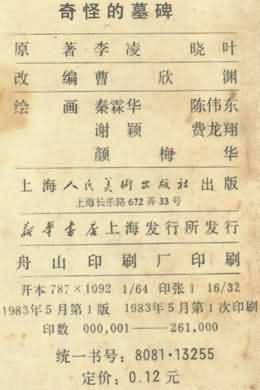 奇怪的墓碑
原 著 李凌 晓叶
改 编 曹欣渊
绘 画 秦霖华 陈伟东
谢颖 费龙翔
颜梅华
上海人民美術出版社出版
上海长乐路672弄33号
新华書店上海发行所发行
舟山印刷厂印刷
开本 787×1092 1/64 印张 1 16/32
1983年5月第1版 1983年5月第1次印刷
印数 000,001——261,000
统一书号：8081·13255
定价：0.12 元